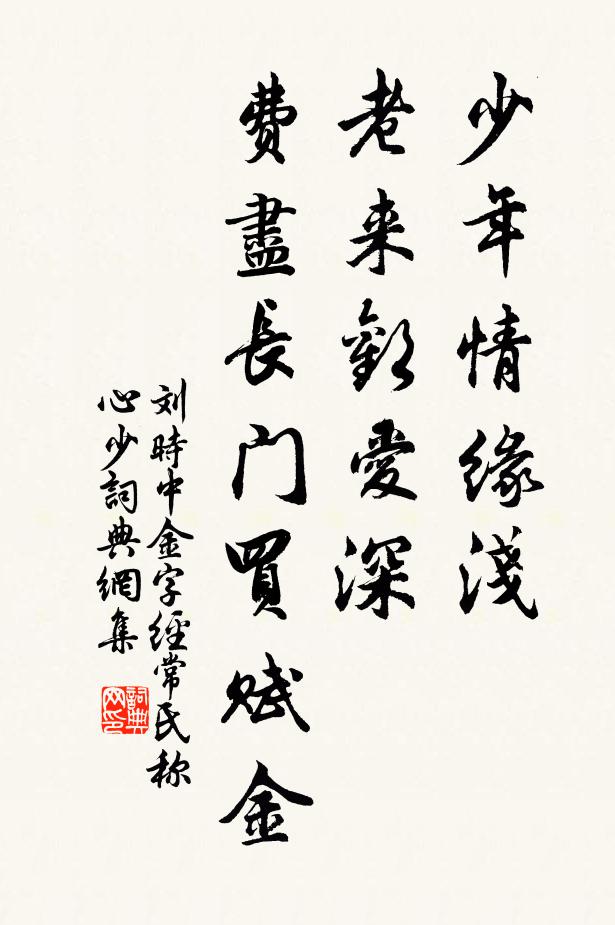 少年情緣淺
老来歡愛深
費盡長门買賦金
刘時中金字經常氏称
心少詞典網集
詞典网印